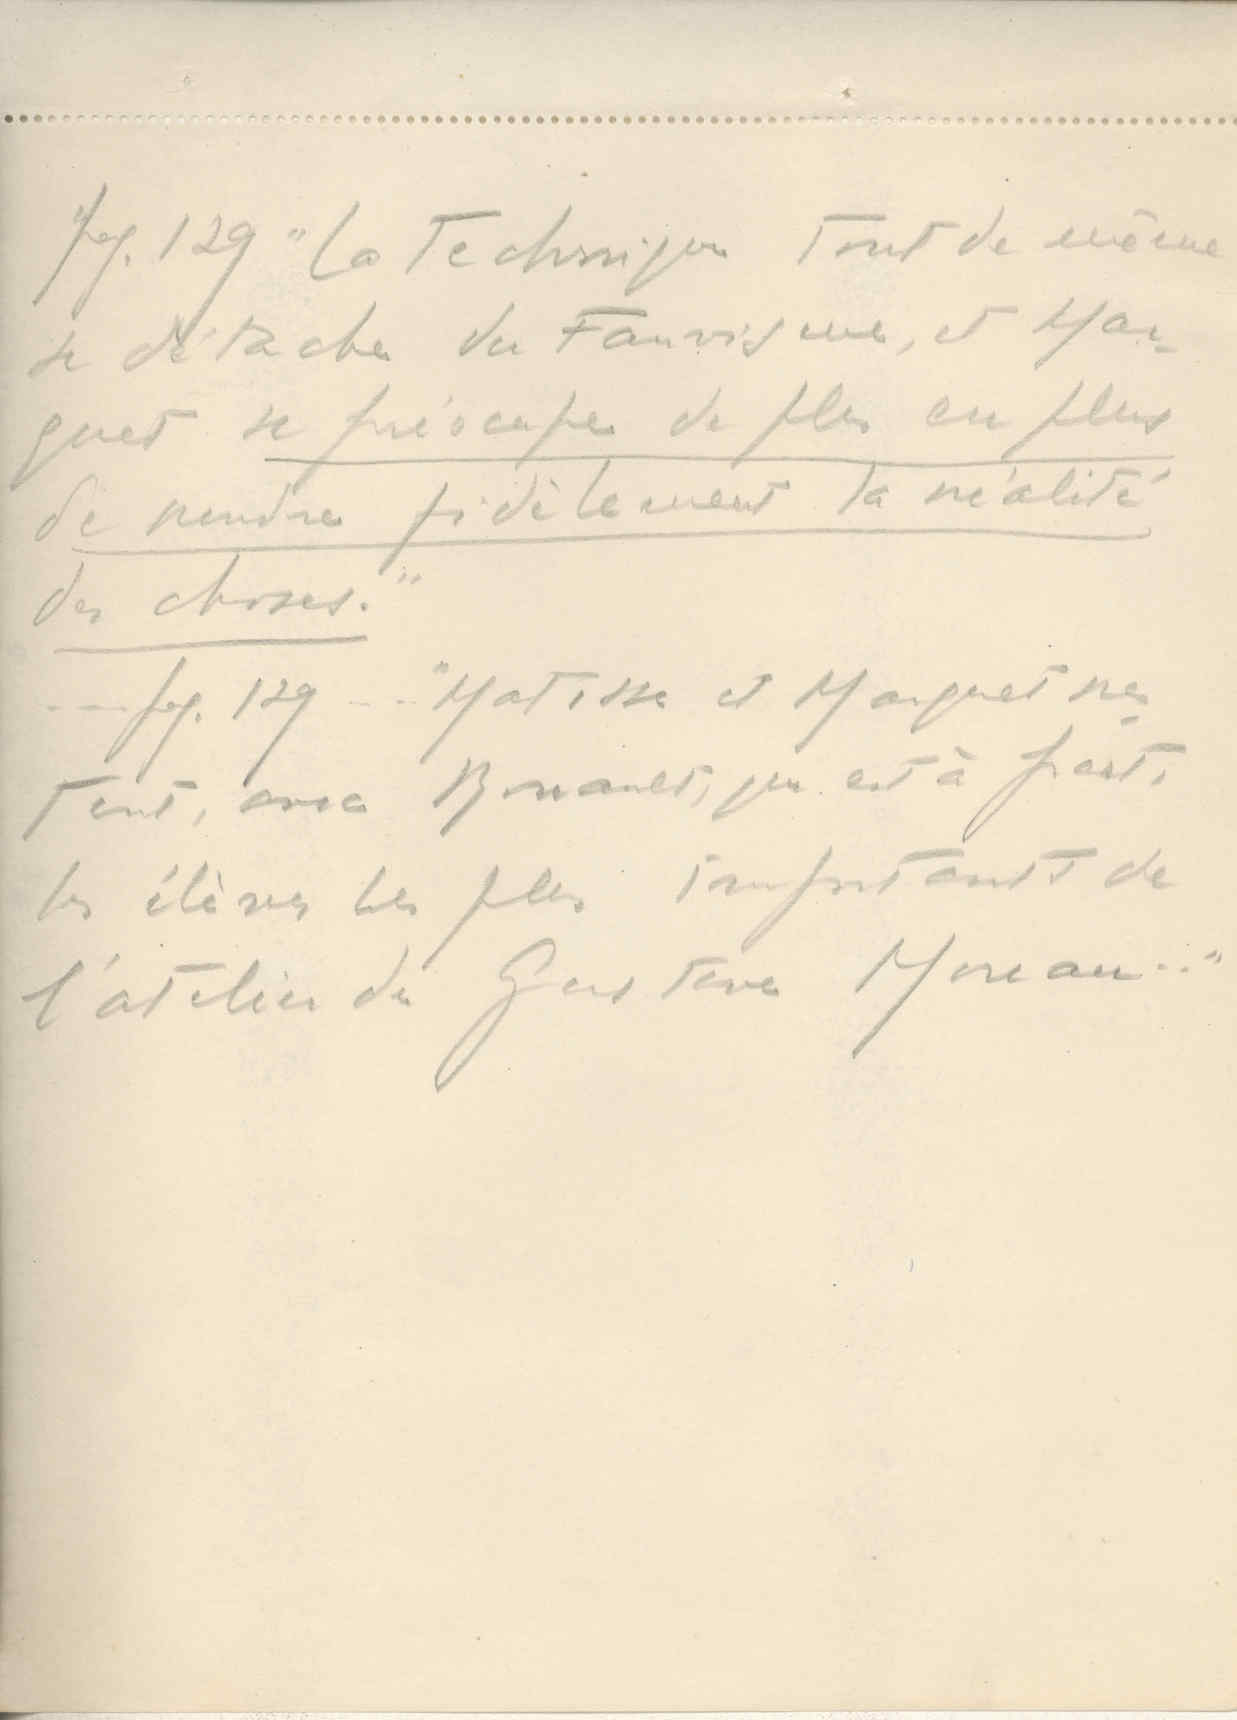 pag. 129 "La Technique Tout de même
se détache du Fauvisme, et Mar-
quet se préocupe de plus en plus
de rendre fidèlement la réalité
des choses."
--- pag. 129 --- "Matisse et Marquet res-
tent, avec Rouault, qui est à part,
les élèves les plus importants de
l'atelier de Gustave Moreau..."